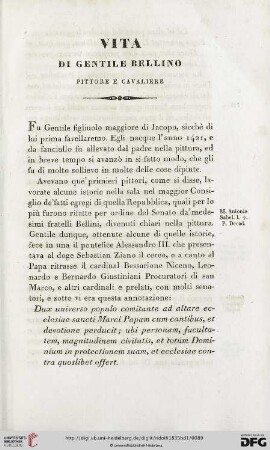 VITA
DI GENTILE BELLINO
PITTORE E CAVALIERE
Fu Gentile figliuolo maggiore di Jacopo, sicchè di
lui prima favellaremo. Egli nacque l'anno 1421, e
da fanciullo fu allevato dal padre nella pittura, ed
in breve tempo si avanzò in sì fatto modo, che gli
fu di molto sollievo in molte delle cose dipinte.
Avevano que' primieri pittori, come si disse, la-
vorate alcune istorie nella sala nel maggior Consi-
glio de' fatti egregi di quella Repubblica, quali per lo
più furono rifatte per ordine del Senato da' mede-
simi fratelli Bellini, divenuti chiari nella pittura.
Gentile dunque, ottenute alcune di quelle istorie,
fece in una il pontefice Alessandro III. che presenta-
va al doge Sebastian Ziano il cereo, e a canto al
Papa ritrasse il cardinal Bessarione Niceno, Leo-
nardo e Bernardo Giustiniani Procuratori di san
Marco, e altri cardinali e prelati, con molti sena-
tori, e sotto vi era questa annotazione:
Dux universo populo comitante ad altare ec-
clesiae sancti Marci Papam cum cantibus, et
devotione perducit; ubi personam, faculta-
tem, magnitudinem civitatis, et totum Domi-
nium in protectionem suam, et ecclesiae con-
tra quoslibet offert.
M. Antonio
Sabel. l. 7.
P. Decad.
UNIVERSITÄTS-
BIBLIOTHEK
HEIDELBERG
© Universitätsbibliothek Heidelberg
gefördert durch die
DFG